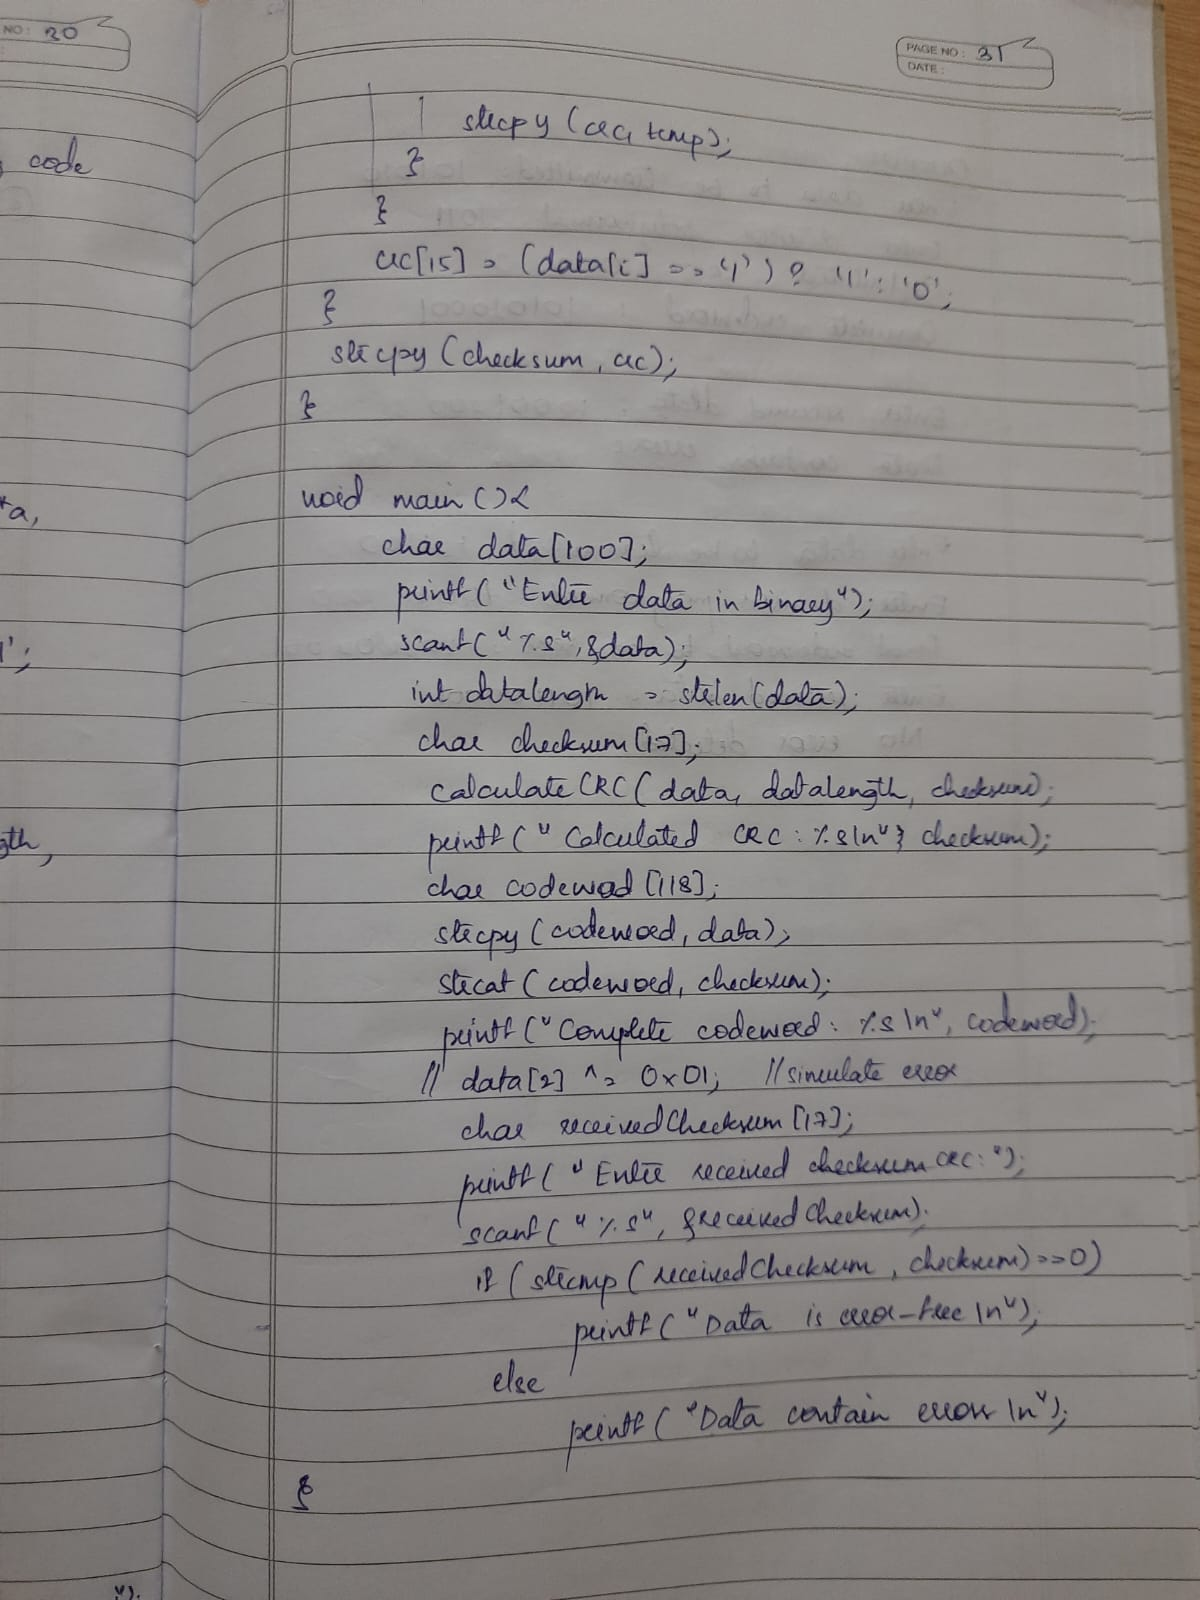 NO: 20
code
*a,
1';
gth,
");
PAGE NO: 31
DATE:
strcpy (crc, temp);
}
}
crc[15] = (data[i] == '1') ? '1' : '0';
}
strcpy (checksum, crc);
}
void main () {
char data[100];
printf("Enter data in binary");
scanf("%s", &data);
int datalength = strlen(data);
char checksum[17];
calculateCRC(data, datalength, checksum);
printf("Calculated CRC: %s\n", checksum);
char codeword[118];
strcpy (codeword, data);
strcat (codeword, checksum);
printf("Complete codeword: %s\n", codeword);
// data[2] ^= 0x01; //simulate error
char receivedChecksum[17];
printf("Enter received checksum CRC:");
scanf("%s", &receivedChecksum);
if (strcmp (receivedChecksum, checksum)==0)
printf("Data is error-free\n");
else
printf("Data contain errors\n");
}